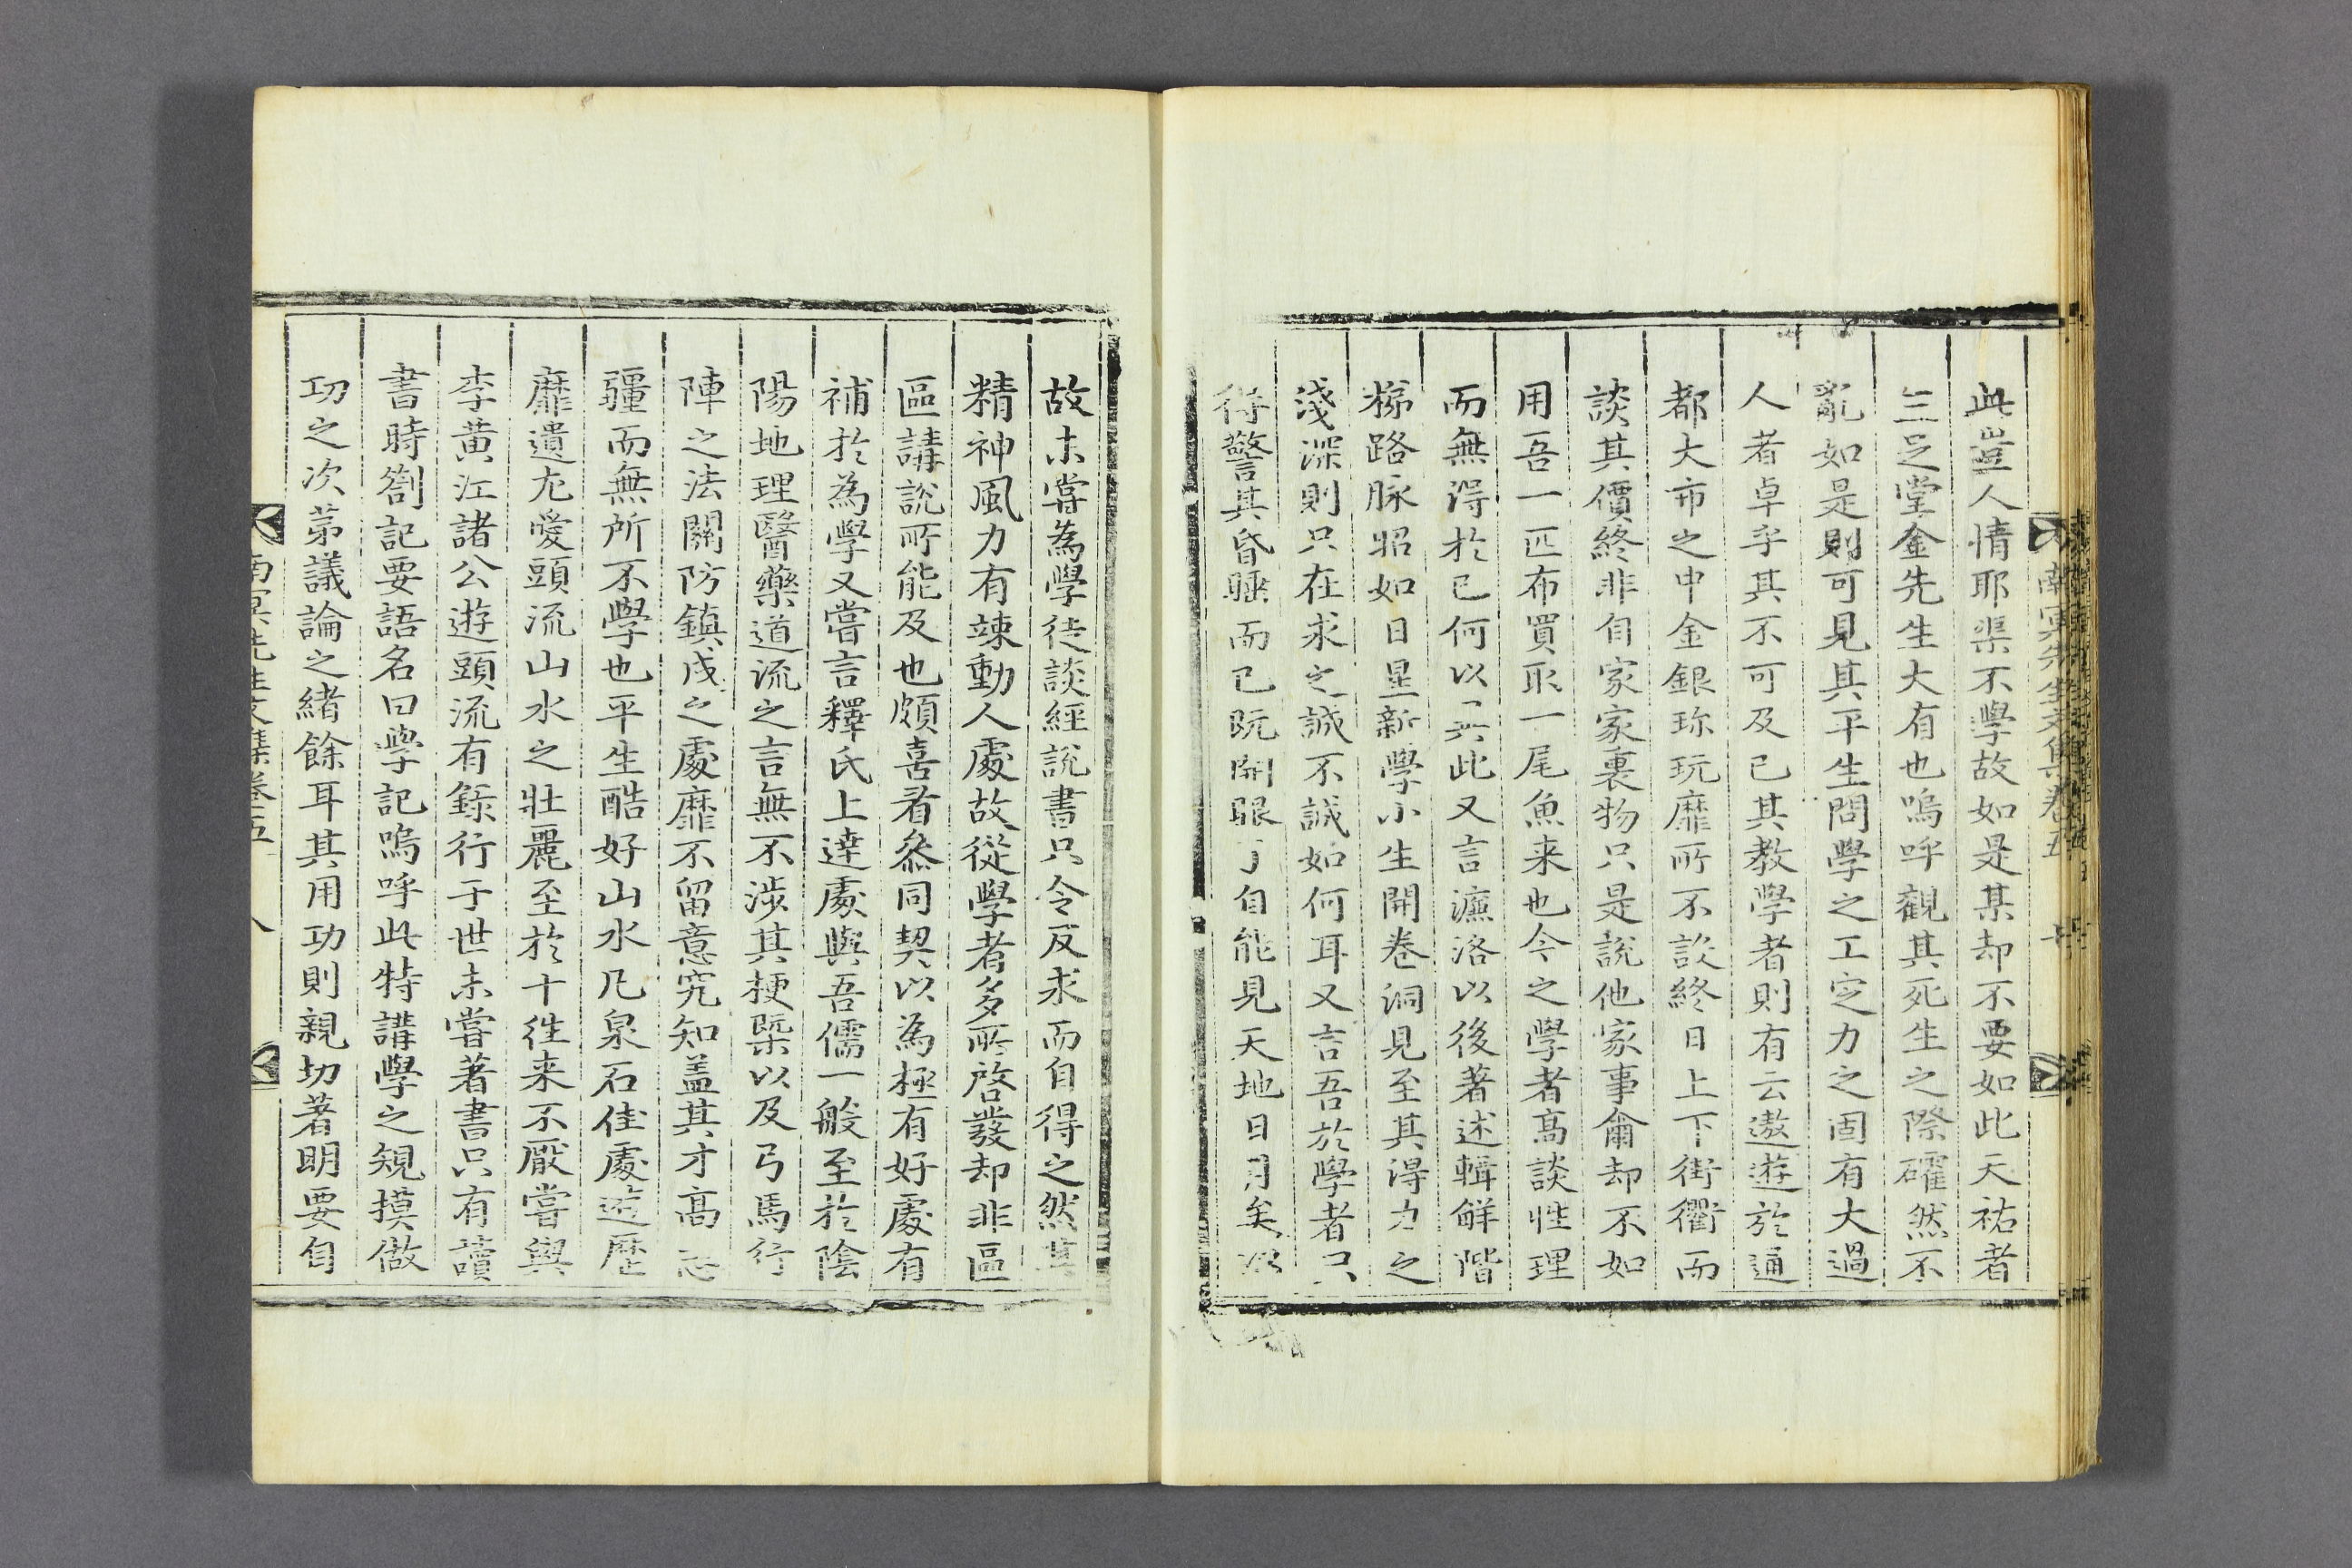 此豈人情耶渠不學故如是某却不要如此天祐者
三足堂金先生大有也嗚呼觀其死生之際確然不
亂如是則可見其平生問學之工定力之固有大過
人者卓乎其不可及已其教學者則有云遨遊於通
都大市之中金銀珎玩靡所不談終日上下街衢而
談其價終非自家家裏物只是說他家事爾却不如
用吾一匹布買取一尾魚来也今之學者高談性理
而無得於己何以異此又言濂洛以後著述輯解階
梯路脉昭如日星新學小生開卷洞見至其得力之
淺深則只在求之誠不誠如何耳又言吾於學者只
得警其昏睡而已既開眼了自能見天地日月矣
故未嘗為學徒談經說書只令反求而自得之然其
精神風力有竦動人處故從學者多所啓發却非區
區講說所能及也頗喜看叅同契以為極有好處有
補於為學又嘗言釋氏上達處與吾儒一般至於陰
陽地理醫藥道流之言無不涉其梗槩以及弓馬行
陣之法關防鎮戍之處靡不留意究知盖其才高志
疆而無所不學也平生酷好山水凡泉石佳處遊歷
靡遺尤愛頭流山水之壯麗至於十徃来不厭嘗與
李黄江諸公遊頭流有録行于世未嘗著書只有讀
書時劄記要語名曰學記嗚呼此特講學之䂓摸做
功之次苐議論之緒餘耳其用功則親切著明要自
南冥先生文集卷五 八